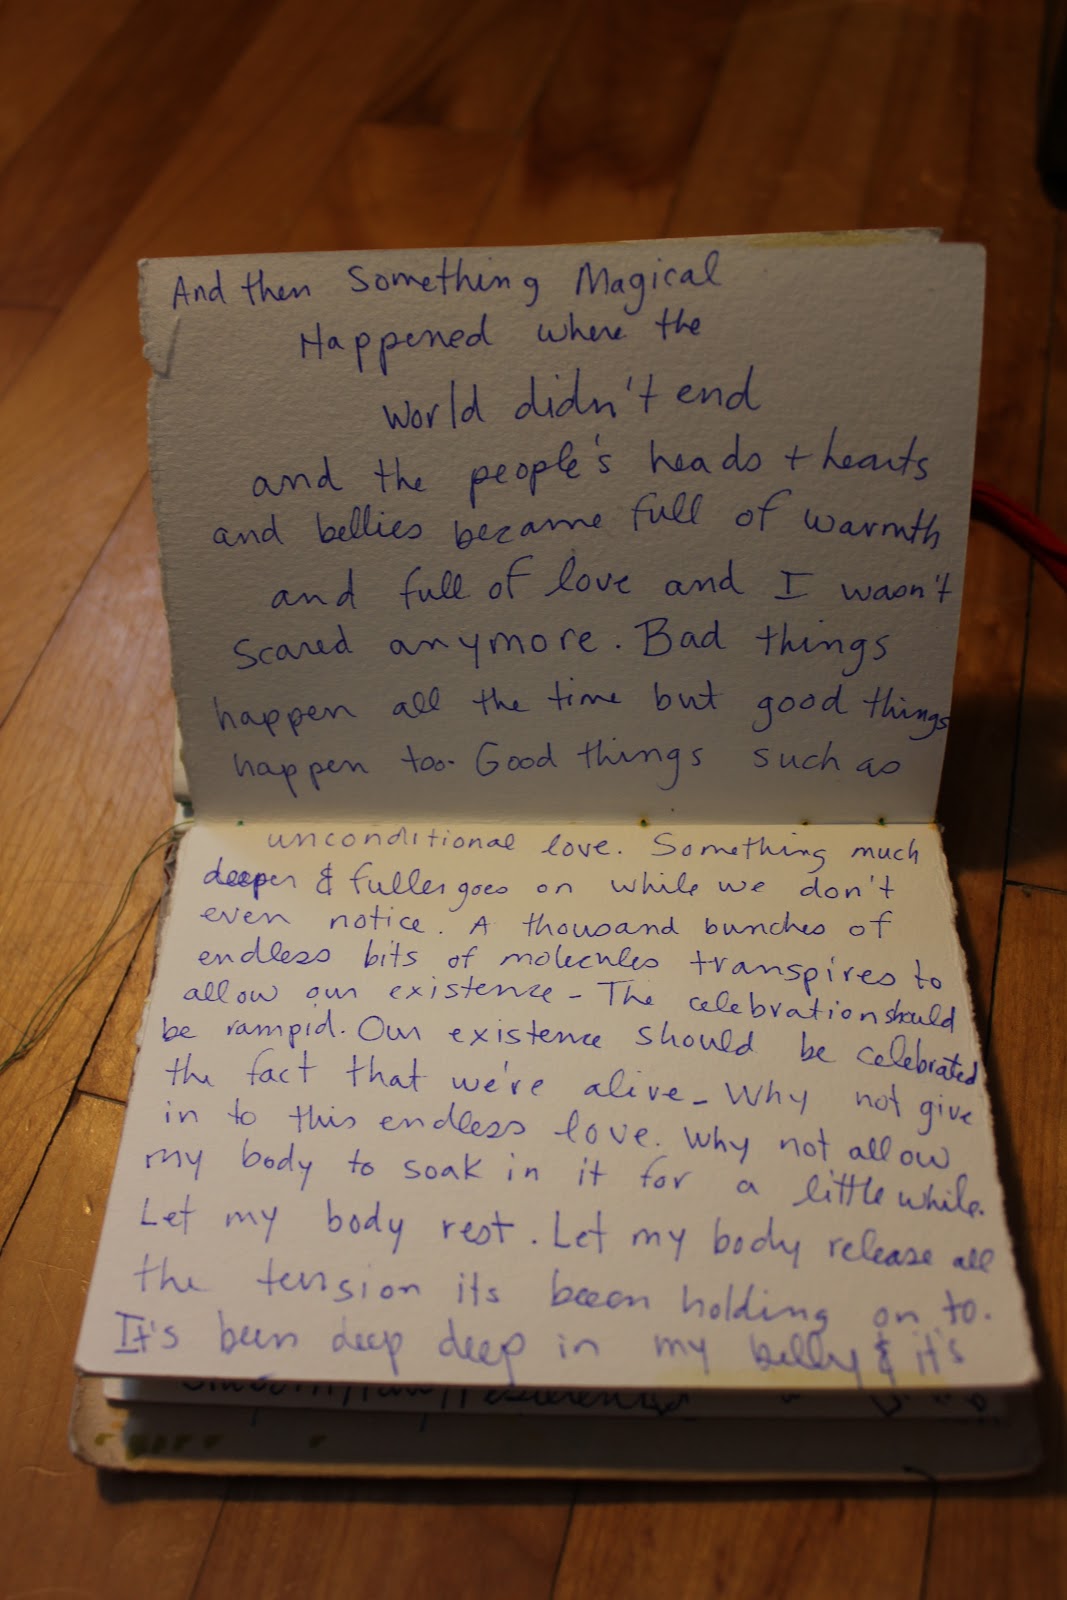 And then Something Magical
Happened where the
world didn't end
and the people's heads + hearts
and bellies became full of warmth
and full of love and I wasn't
scared anymore. Bad things
happen all the time but good things
happen too. Good things such as
unconditional love. Something much
deeper & fuller goes on while we don't
even notice. A thousand bunches of
endless bits of molecules transpires to
allow our existence - The celebration should
be rampid. Our existence should be celebrated
the fact that we're alive - Why not give
in to this endless love. Why not allow
my body to soak in it for a little while.
Let my body rest. Let my body release all
the tension its been holding on to.
It's been deep deep in my belly & it's